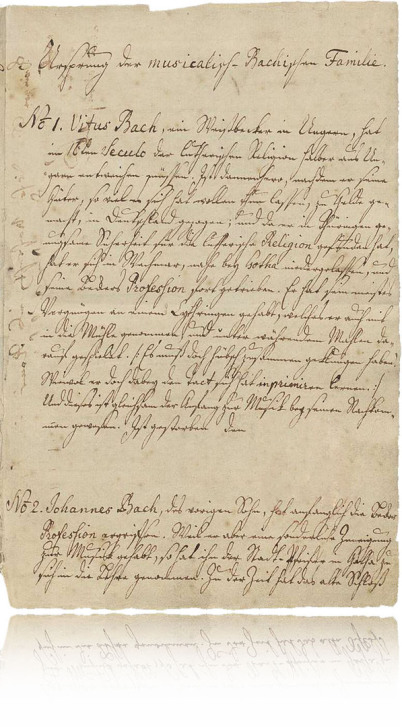 Ursprung der musicalisch-Bachischen Familie.
No 1. Vitus Bach, ein Weißbecker in Ungern, hat
im 16ten Seculo der lutherischen Religion halber aus Un-
garn entweichen müssen. Ist dannenhero, nachdem er seine
Güter, so viel es sich hat wollen thun laßen, zu Gelde ge-
macht, in Deutschland gezogen; und da er in Thüringen ge-
nugsame Sicherheit für die lutherische Religion gefunden hat,
hat er sich in Wechmar, nahe bey Gotha niedergelassen, und
seine Beckers Profession fort getrieben. Er hat sein meistes
Vergnügen an einem Cythringen gehabt, welches er auch mit
in die Mühle genommen, und unter währendem Mahlen da-
rauf gespielet. (Es muß doch hübsch zusammen geklungen haben!
Wiewol er doch dabey den Tact sich hat inprimiren lernen.)
Und dieses ist gleichsam der Anfang zur Music bey seinen Nachkom-
men gewesen. Ist gestorben den
No 2. Johannes Bach, des vorigen Sohn, hat anfänglich die Becker
Profession ergriffen. Weil er aber eine sonderliche Zuneigung
zur Music gehabt, so hat ihn der Stadt Pfeiffer in Gotha zu
sich in die Lehre genommen. Zu der Zeit hat das alte Schloß